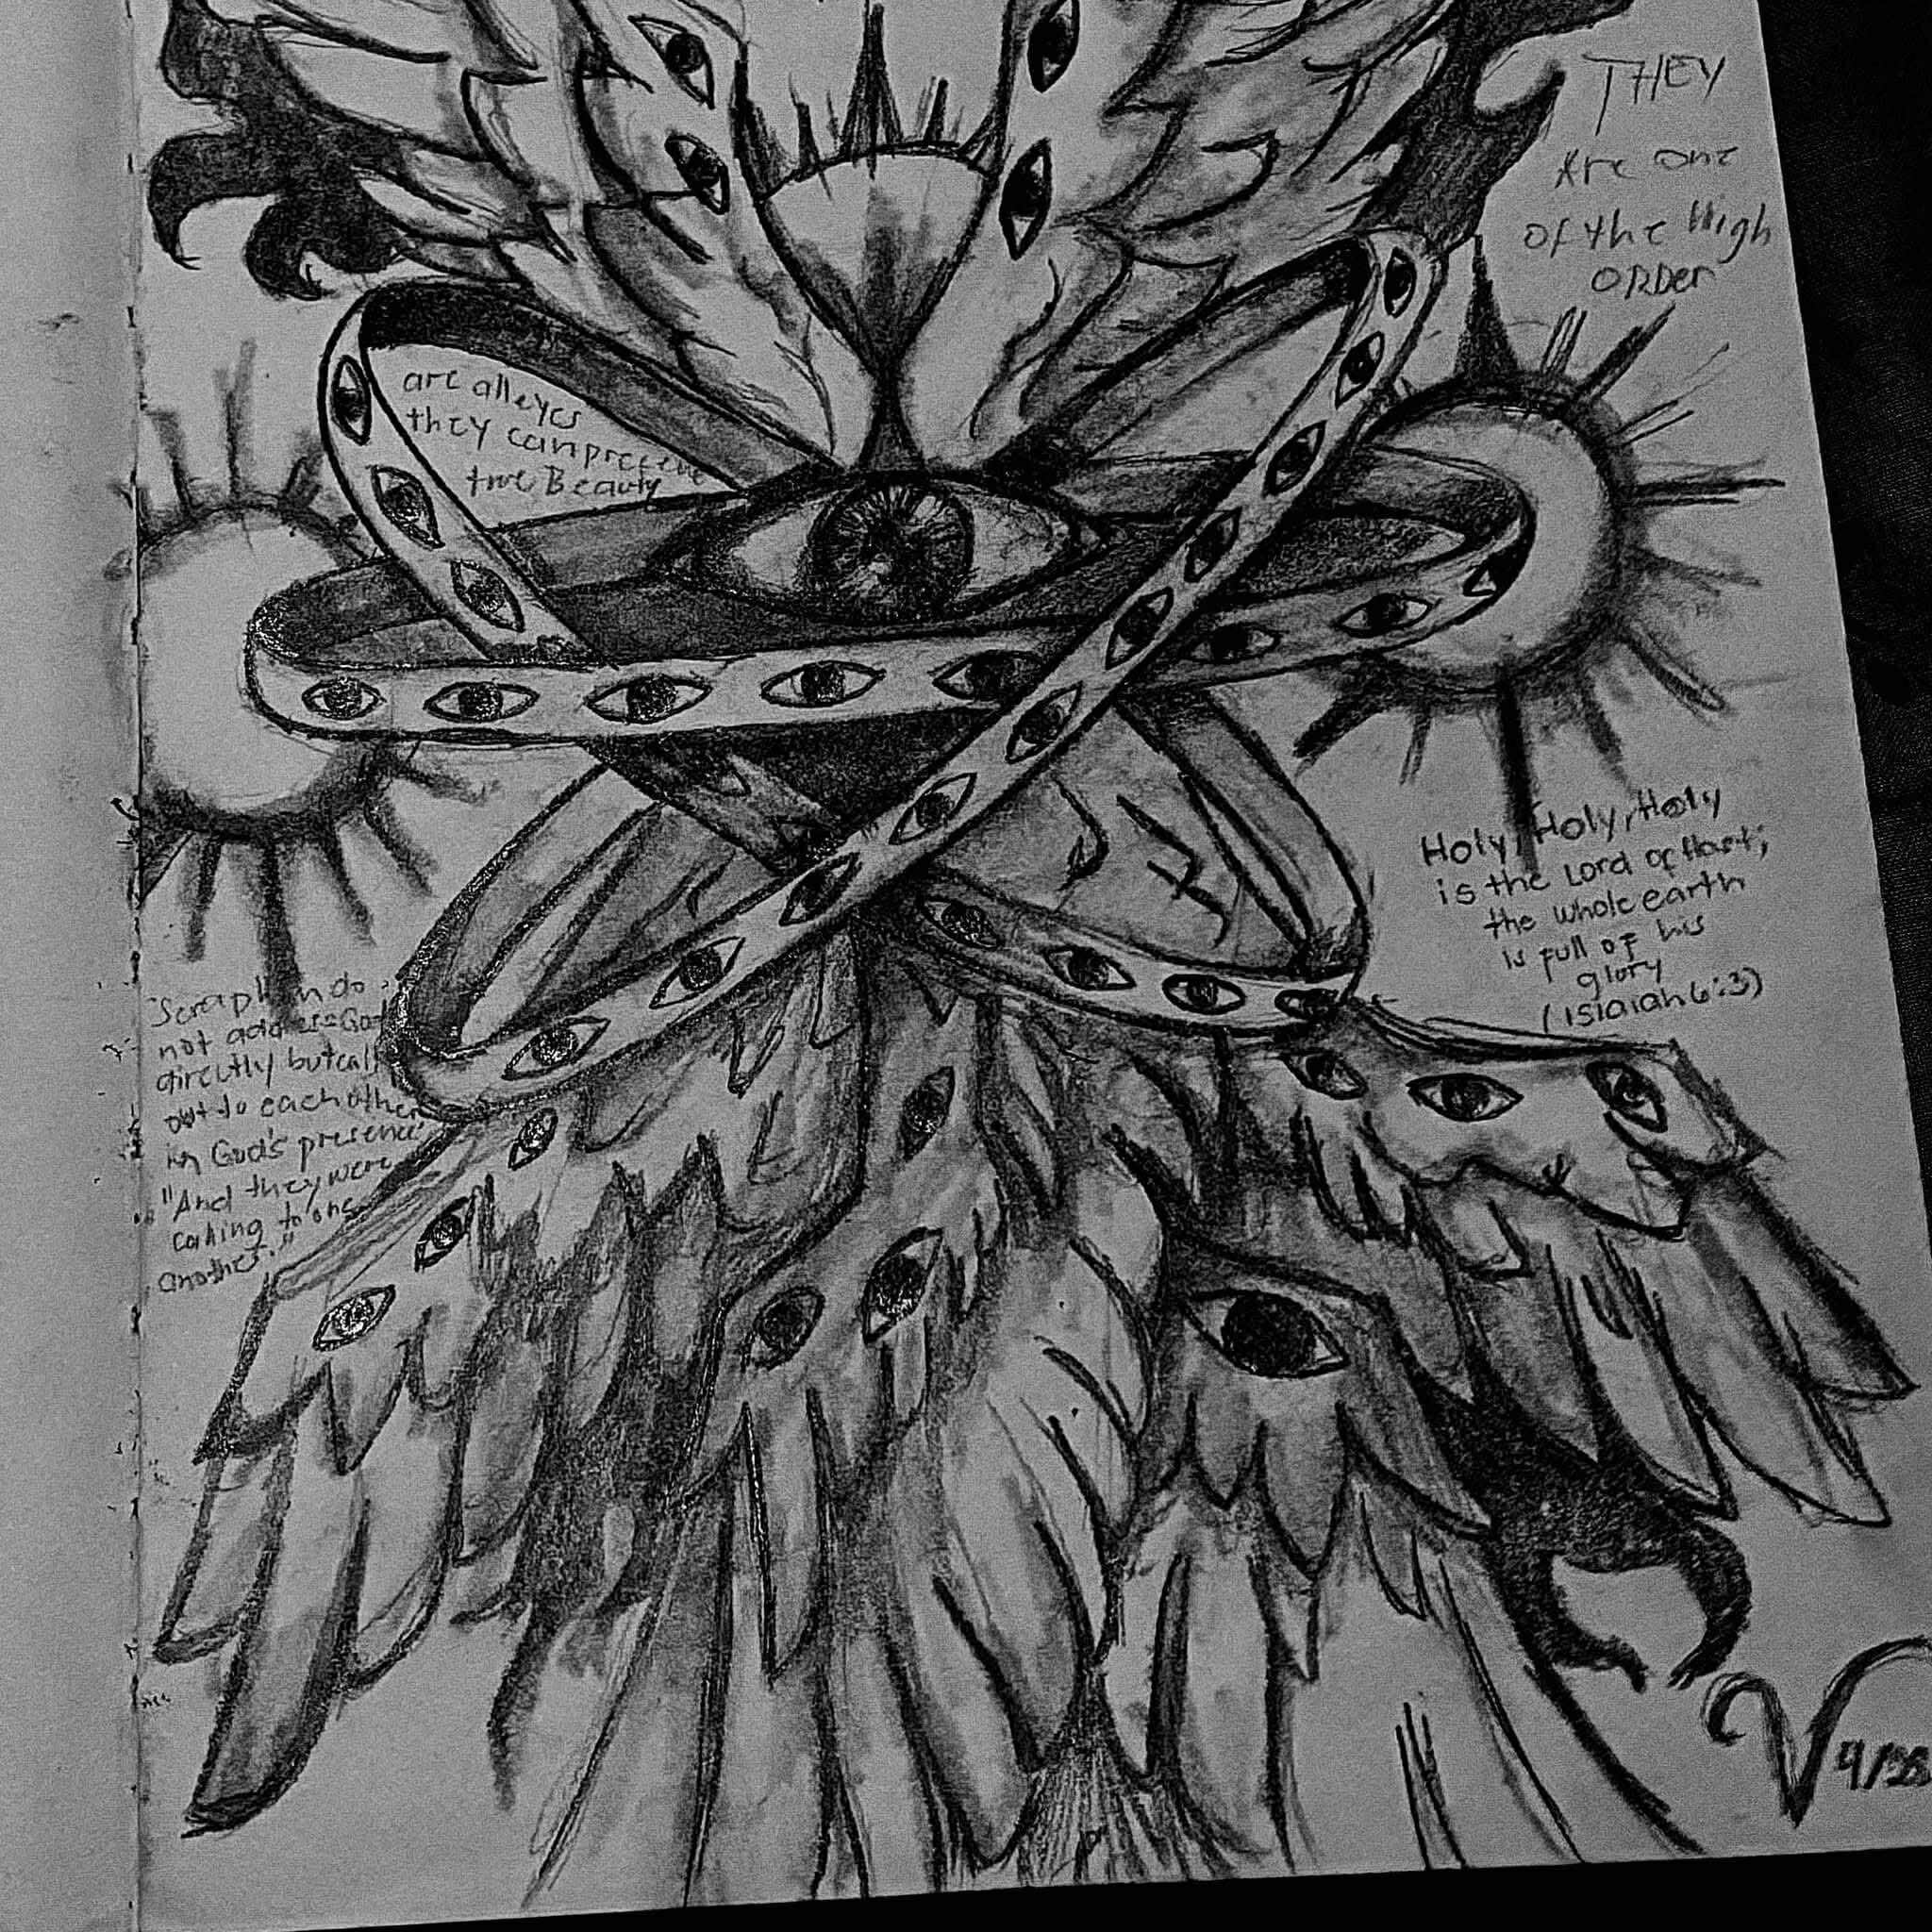 THEY
Are one
of the High
ORDer
are all eyes
they can
true Beauty
Holy, Holy, Holy
is the Lord of Host;
the whole earth
is full of his
glory
(Isiaiah 6:3)
do
not God
directly but call
out to each other
in God's presence
"And they were
calling to one
another."
V 4/25